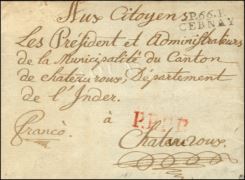 Aux Citoyens
P.66.P.
CERNAY
Les Président et Administrateurs
de la Municipalité du Canton
de chateauroux, Département
de l'Inder.
à
Franco
P.P.P.P.
Chateauroux.